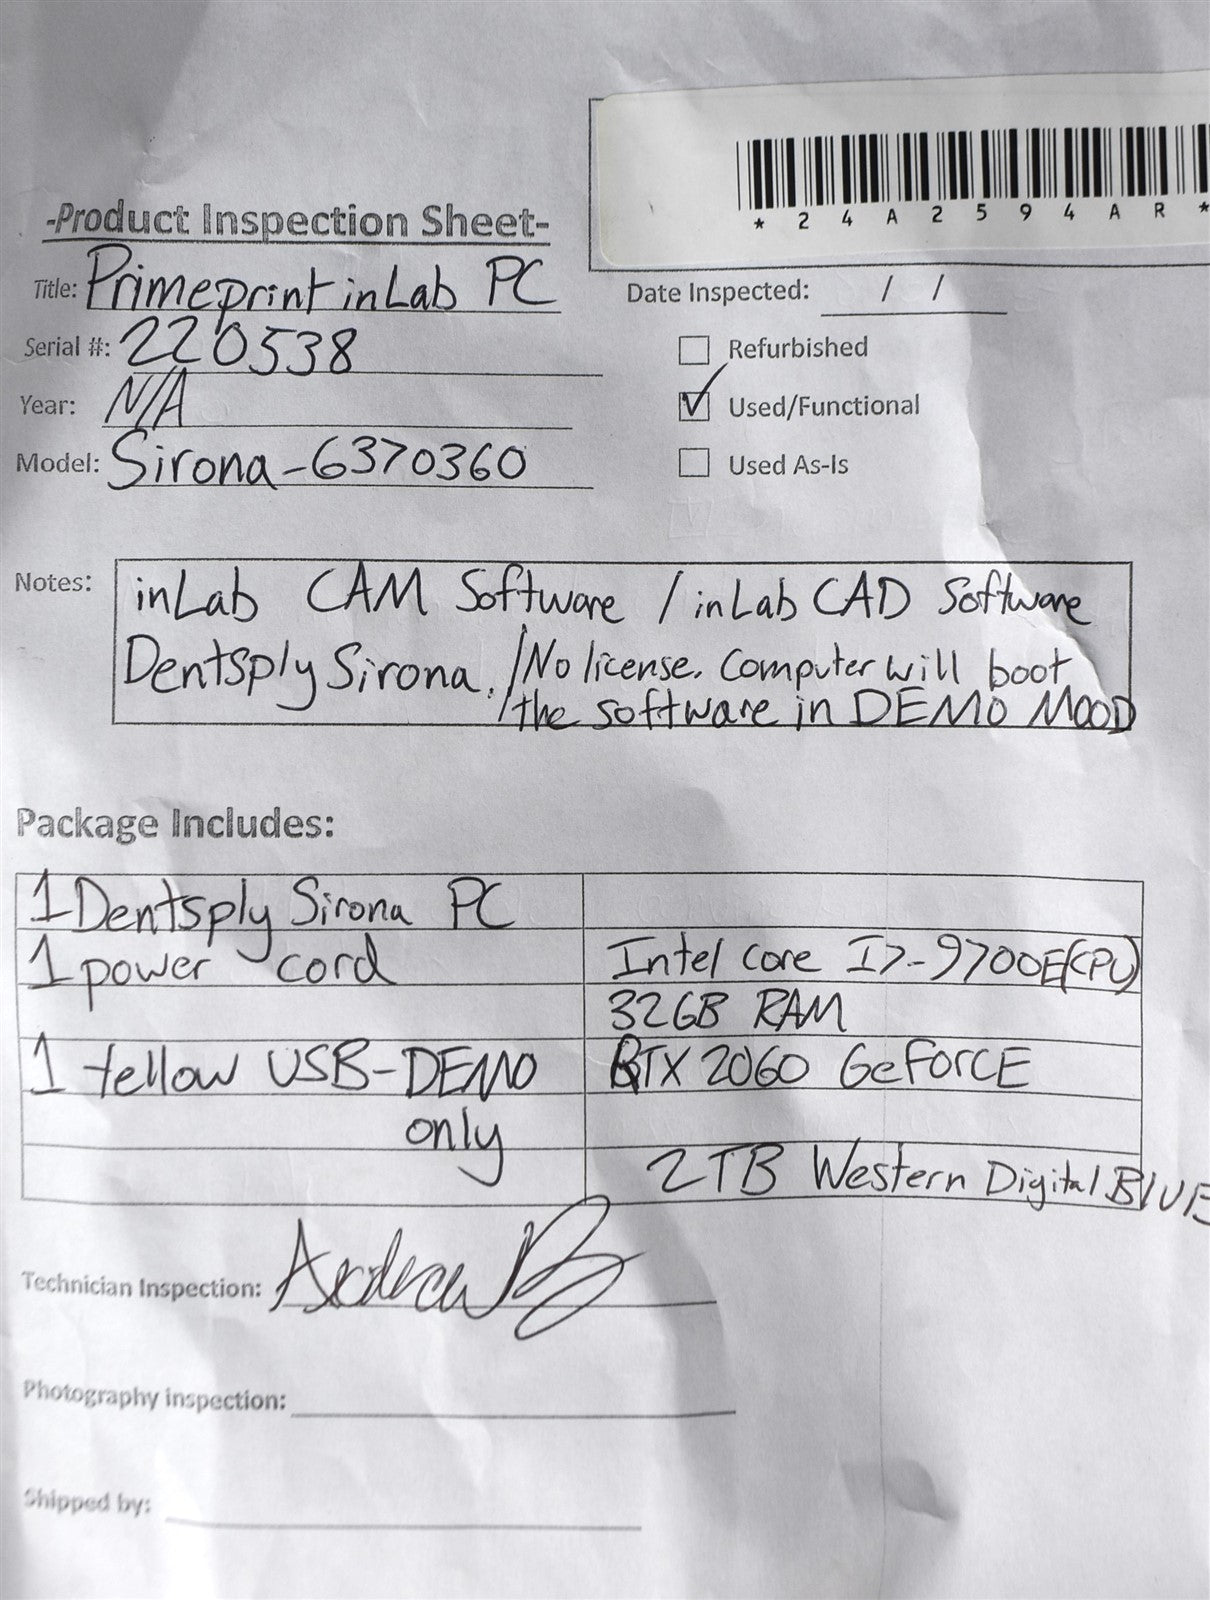 *24A2594AR*
-Product Inspection Sheet-
Title: Primeprint inLab PC
Date Inspected: / /
Serial #: 220538
Refurbished
Year: N/A
Used/Functional
Model: Sirona-6370360
Used As-Is
Notes: inLab CAM Software / inLab CAD Software
Dentsply Sirona. /No license. Computer will boot
/the software in DEMO MOOD
Package Includes:
1 Dentsply Sirona PC
1 power cord
Intel core I7-9700E(CPU)
32GB RAM
1 Yellow USB-DEMO
RTX 2060 GeFORCE
only
2TB Western Digital BlUE
Technician Inspection:
Photography inspection:
Shipped by: